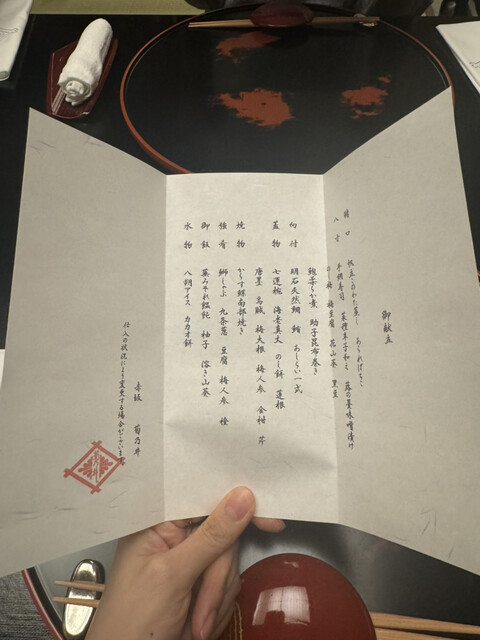 御献立
帆立 蒸し あらればちこ
八寸 手綱寿司 菜種辛子和え 蕗の薹味噌漬け
のし梅 梅豆腐 花山葵 黒豆
助子昆布巻き
向付 明石天然鯛 鮪 あしらい一式
蓋物 七運椀 海老真丈 のし餅 蓮根
唐墨 烏賊 梅大根 梅人参 金柑 芹
焼物 からす鰆南部焼き
強肴 鰤しゃぶ 九条葱 豆腐 梅人参 橙
御飯 蒸みぞれ饂飩 柚子 溶き山葵
水物 八朔アイス カカオ餅
赤坂 菊乃井
仕入の状況により変更する場合がございます